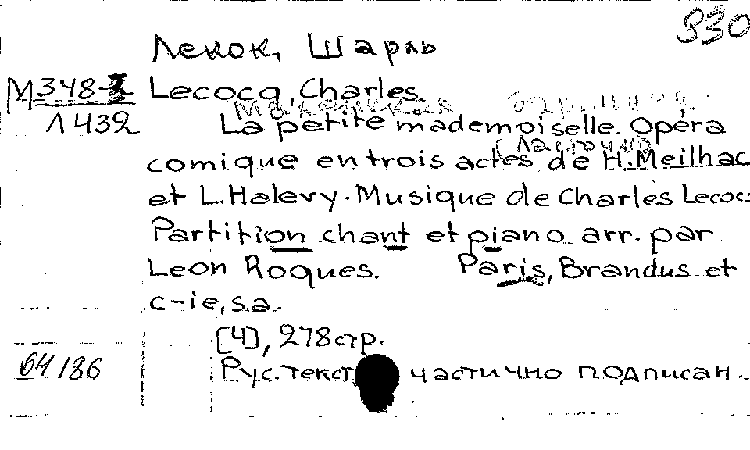 930
Лекок, Шарль
М 348-1 Lecocq, Charles.
Маленькая барышня.
Л 432 La petite mademoiselle. Opéra
comique en trois actes de H. Meilhac
et L. Halevy. Musique de Charles Lecoc
Partition chant et piano arr. par
Leon Roques. Paris, Brandus et
c-ie, s.a.
[4], 278 стр.
64 186 Рус. текст частично подписан.